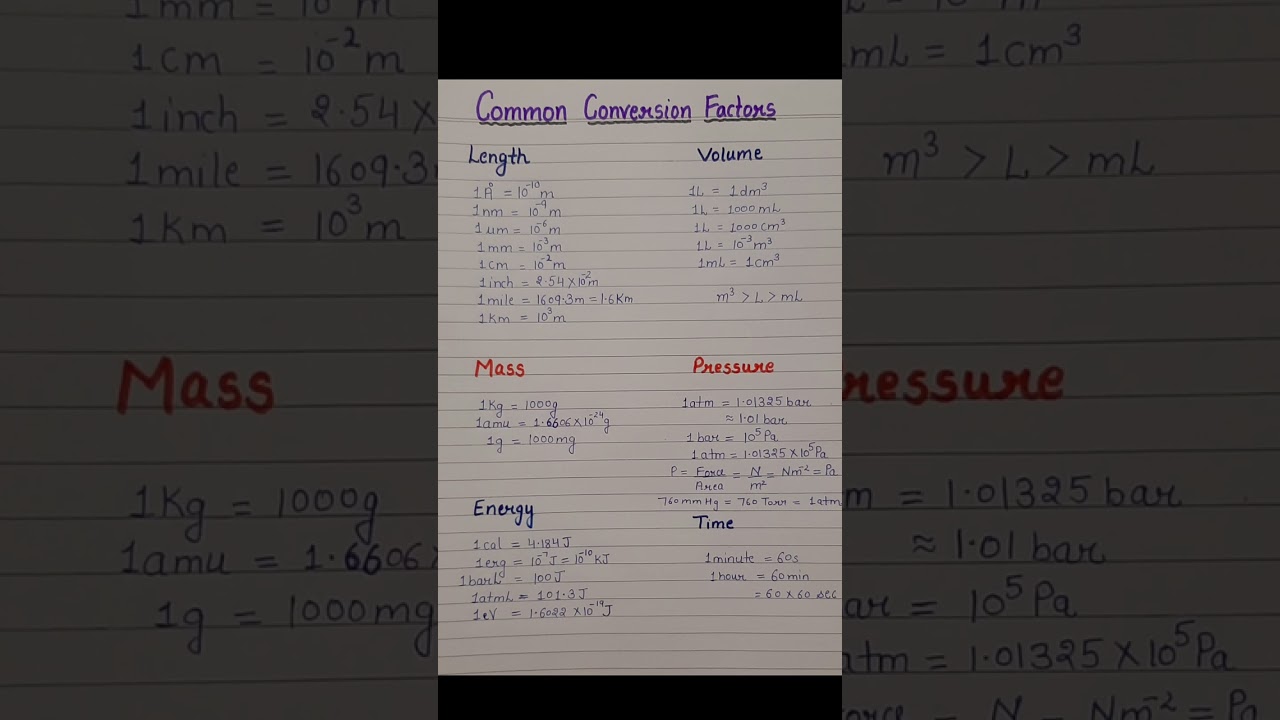 Common Conversion Factors
Length
1Å = 10⁻¹⁰m
1nm = 10⁻⁹m
1um = 10⁻⁶m
1mm = 10⁻³m
1cm = 10⁻²m
1inch = 2.54×10⁻²m
1mile = 1609.3m = 1.6Km
1Km = 10³m
Volume
1L = 1dm³
1L = 1000mL
1L = 1000cm³
1L = 10⁻³m³
1mL = 1cm³
m³ > L > mL
Mass
1Kg = 1000g
1amu = 1.6606×10⁻²⁴g
1g = 1000mg
Pressure
1atm = 1.01325 bar
≈ 1.01 bar
1bar = 10⁵Pa
1atm = 1.01325×10⁵Pa
P = Force/Area = N/m² = Nm⁻² = Pa
760mmHg = 760 Torr = 1atm
Energy
1cal = 4.184J
1erg = 10⁻⁷J = 10⁻¹⁰KJ
1barL = 100J
1atmL = 101.3J
1eV = 1.6022×10⁻¹⁹J
Time
1minute = 60s
1hour = 60min
= 60×60 sec
1mm = 10 m
1cm = 10⁻²m
1inch = 2.54×
1mile = 1609.3
1Km = 10³m
Mass
1Kg = 1000g
1amu = 1.6606
1g = 1000mg
mL = 1cm³
m³ > L > mL
ressure
m = 1.01325 bar
≈ 1.01 bar
ar = 10⁵Pa
atm = 1.01325×10⁵Pa
orce = N = Nm⁻² = Pa